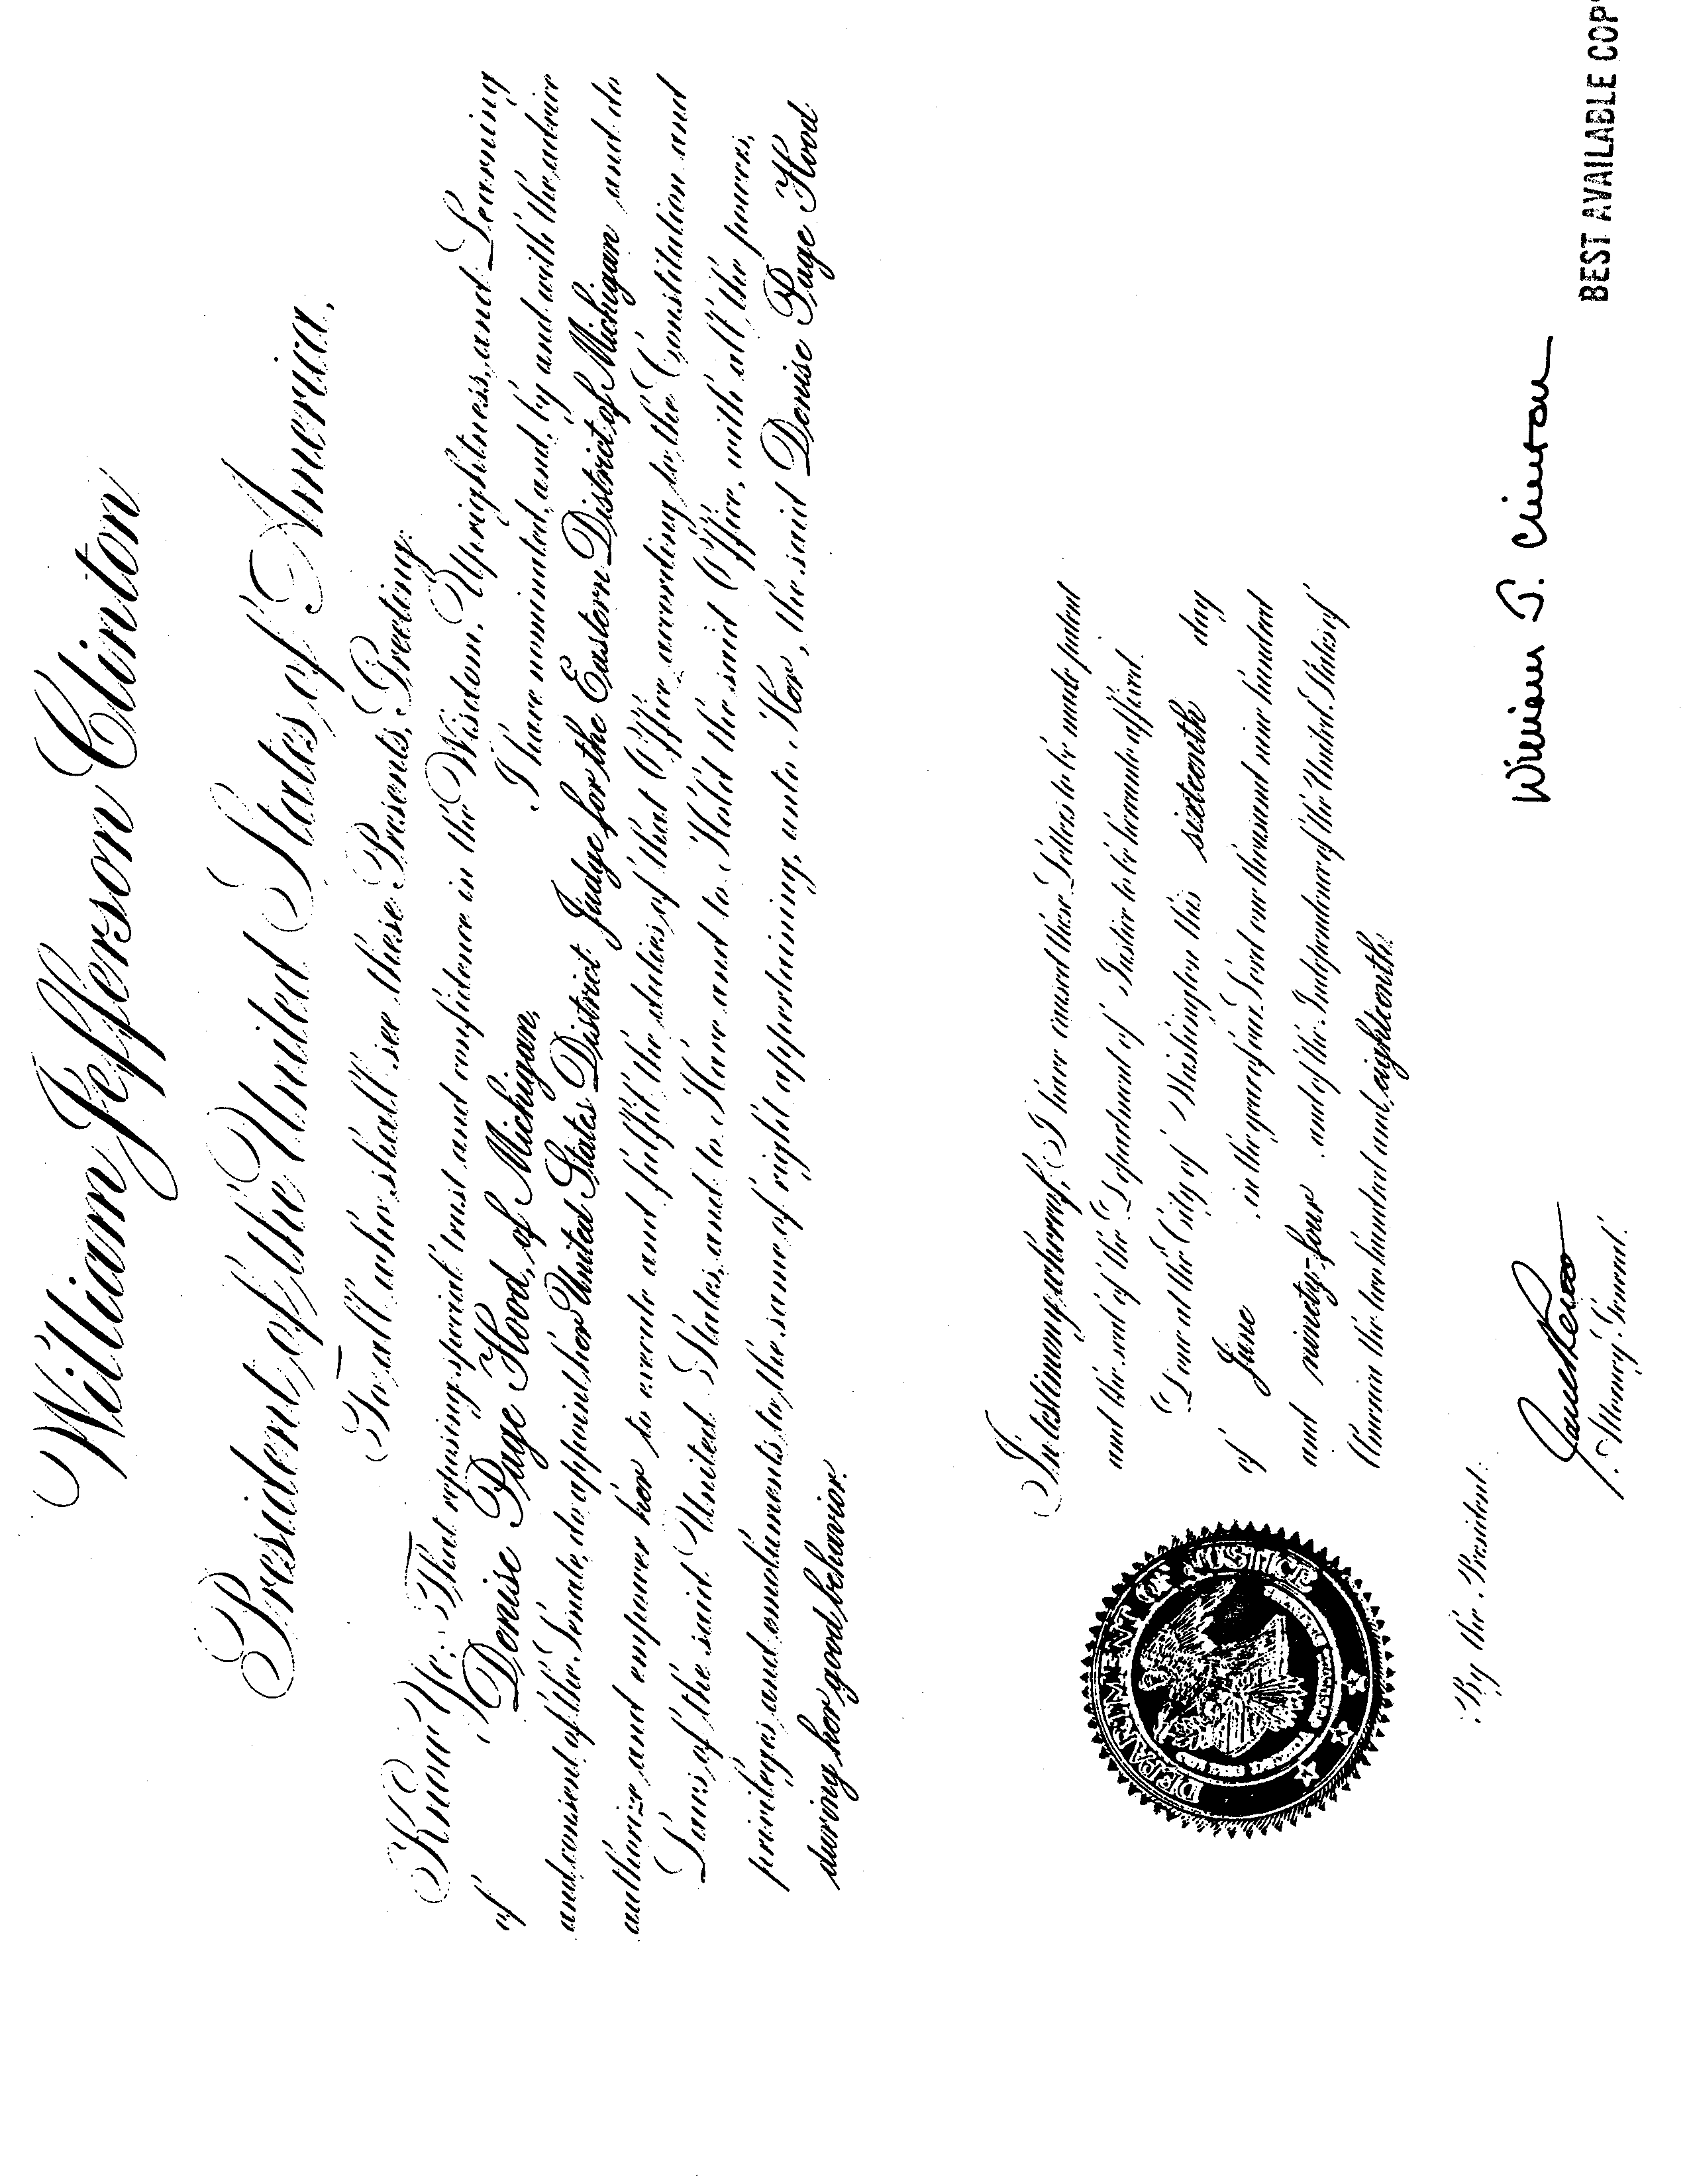 William Jefferson Clinton
President of the United States of America,
To all who shall see these Presents, Greeting:
Know Ye: That reposing special trust and confidence in the Wisdom, Uprightness, and Learning
of Denise Page Hood, of Michigan, I have nominated, and, by and with the advice
and consent of the Senate, do appoint her United States District Judge for the Eastern District of Michigan and do
authorize and empower her to execute and fulfil the duties of that Office according to the Constitution and
Laws of the said United States, and to Have and to Hold the said Office, with all the powers,
privileges and emoluments to the same of right appertaining, unto Her, the said Denise Page Hood
during her good behavior.
In testimony whereof, I have caused these Letters to be made patent
and the seal of the Department of Justice to be hereunto affixed.
Done at the City of Washington this sixteenth day
of June in the year of our Lord one thousand nine hundred
and ninety-four and of the Independence of the United States of
America the two hundred and eighteenth.
DEPARTMENT OF JUSTICE
QUI PRO DOMINA JUSTITIA SEQUITUR
By the President:
William J. Clinton
Janet Reno
Attorney General.
BEST AVAILABLE COPY